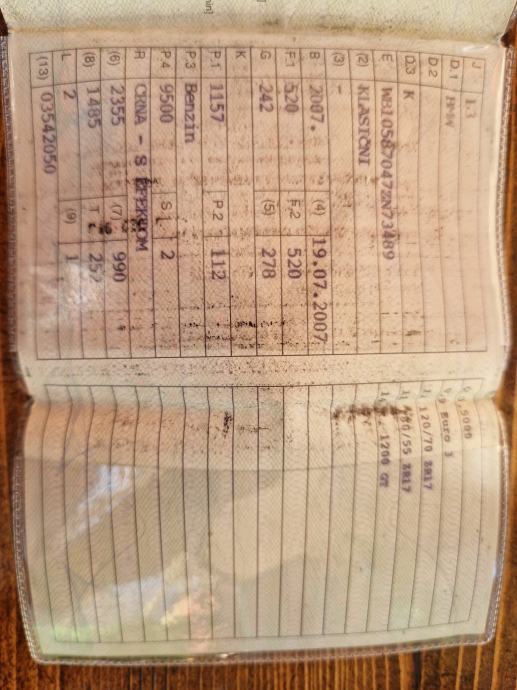 J L3
D.1 BMW
D.2
D.3 K
E WB10587047ZN73489
(2) KLASIČNI
(3) -
B 2007. (4) 19.07.2007
F.1 520 F.2 520
G 242 (5) 278
K
P.1 1157 P.2 112
P.3 Benzin
P.4 9500 S.1 2
R CRNA - S EFEKTOM
(6) 2355 (7) 990
(8) 1485 T 257
L 2 (9) 1
(13) 03542050
9 Euro 3
120/70 ZR17
180/55 ZR17
1200 GT